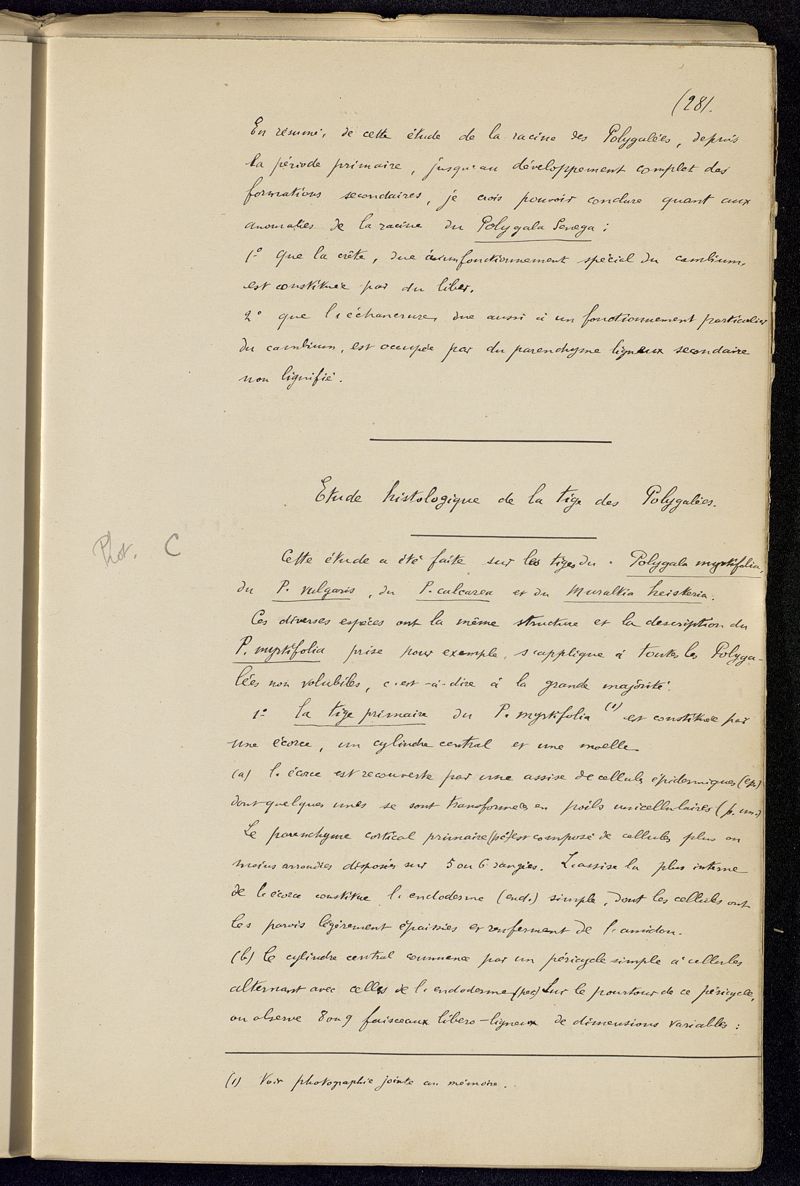 (28).
En résumé, de cette étude de la racine des Polygalées, depuis
la période primaire, jusqu'au développement complet des
formations secondaires, je crois pouvoir conclure quant aux
anomalies de la racine du Polygala Senega :
1º que la crête, due à un fonctionnement spécial du cambium,
est constituée par du liber.
2º que l'échancrure, due aussi à un fonctionnement particulier
du cambium, est occupée par du parenchyme ligneux secondaire
non lignifié.
Etude histologique de la tige des Polygalées.
Phot. C
Cette étude a été faite sur les tiges du Polygala myrtifolia,
du P. vulgaris, du P. calcarea et du Muraltia heisteria.
Ces diverses espèces ont la même structure et la description du
P. myrtifolia prise pour exemple, s'applique à toutes les Polyga-
lées non volubiles, c'est-à-dire à la grande majorité.
1º la tige primaire du P. myrtifolia (1) est constituée par
une écorce, un cylindre central et une moelle.
(a) l'écorce est recouverte par une assise de cellules épidermiques (ep)
dont quelques unes se sont transformées en poils unicellulaires (p. un.)
Le parenchyme cortical primaire (pé) est composé de cellules plus ou
moins arrondies disposées sur 5 ou 6 rangées. L'assise la plus interne
de l'écorce constitue l'endoderme (end.) simple, dont les cellules ont
les parois légèrement épaissies et renferment de l'amidon.
(b) le cylindre central commence par un péricycle simple à cellules
alternant avec celles de l'endoderme (pec) Sur le pourtour de ce péricycle,
on observe 8 ou 9 faisceaux libero-ligneux de dimensions variables :
(1) Voir photographie jointe au mémoire.